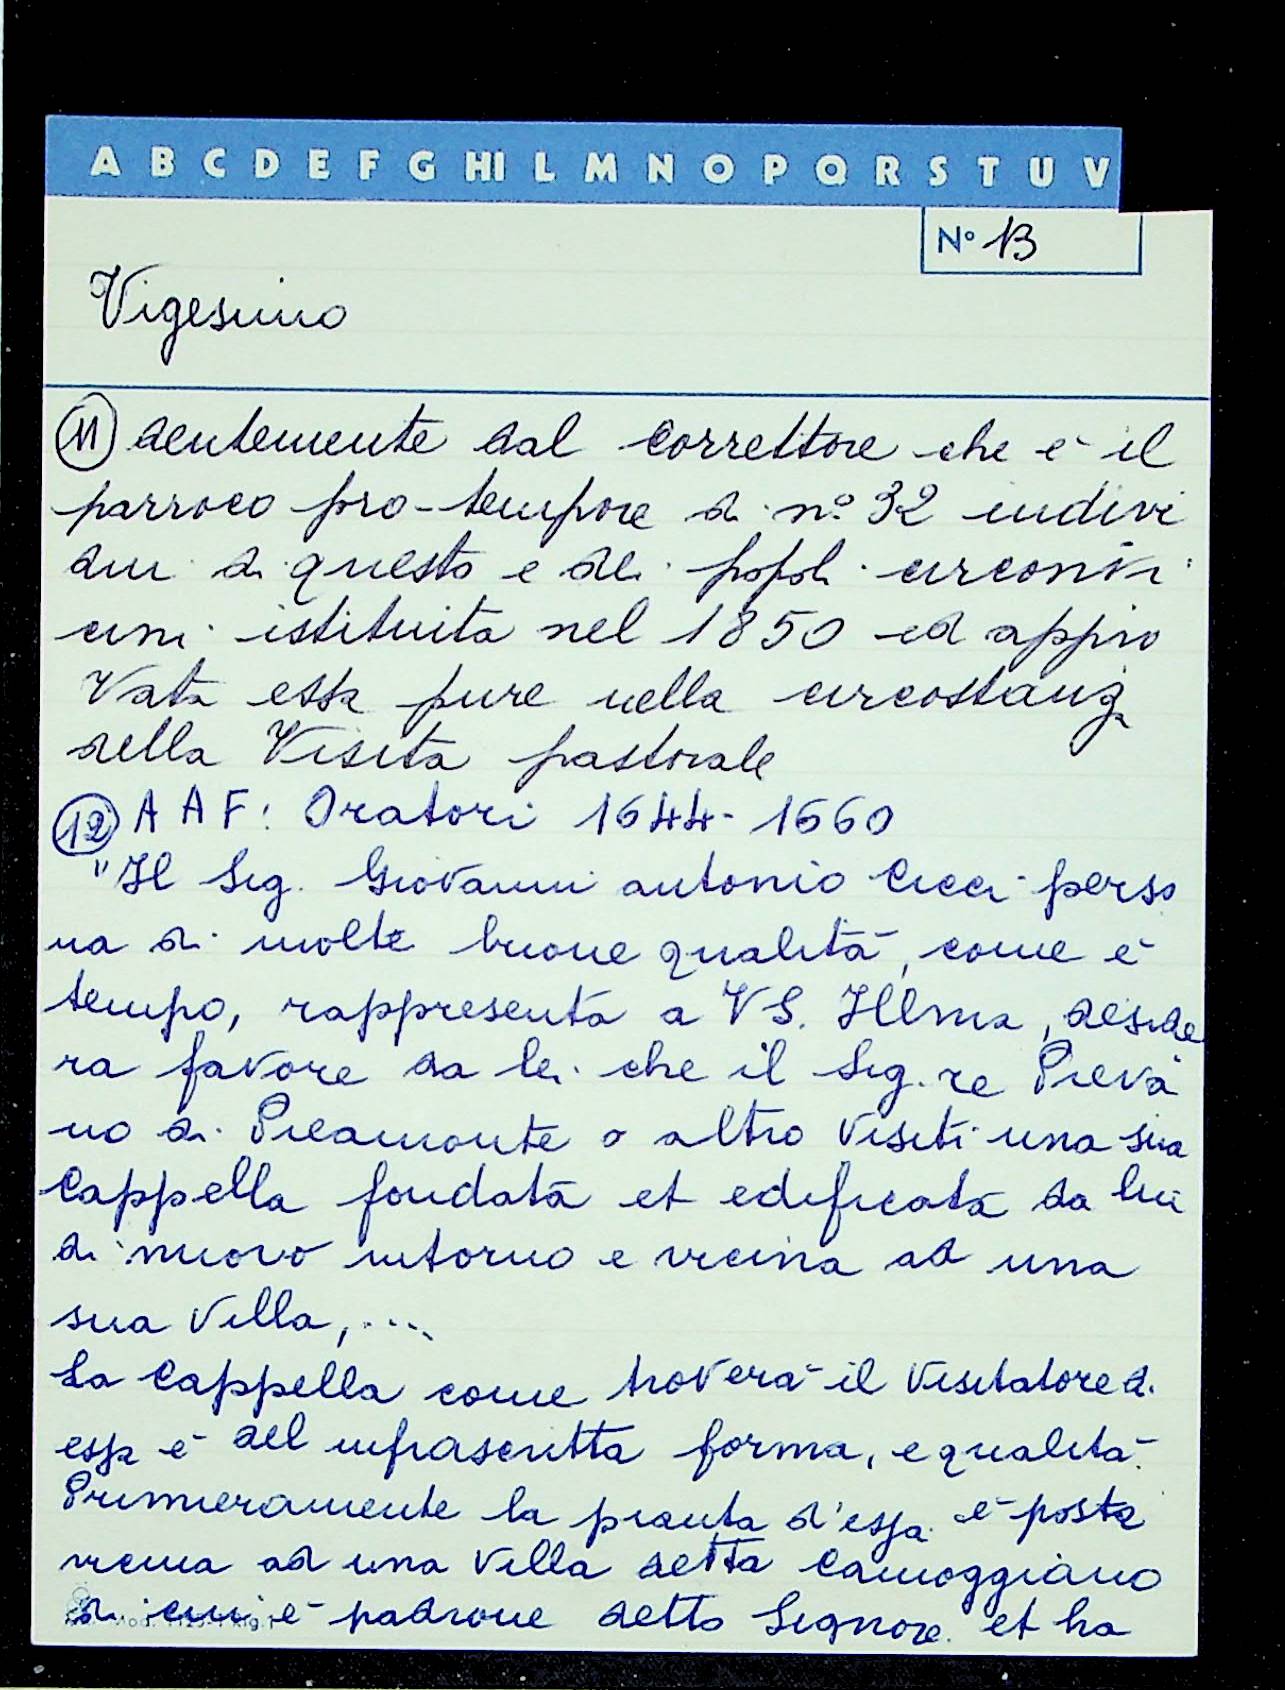 A B C D E F G HI L M N O P Q R S T U V
N° 13
Vigesimo
11 dentemente dal correttore che è il
parroco pro-tempore di n.° 32 indivi
dui di questo e dei popoli circonvi
cini istituita nel 1850 ed appro
vata essa pure nella circostanza
della Visita pastorale
12 A A F: Oratori 1644-1660
"Il Sig. Giovanni antonio Cicci perso
na di molte buone qualità, come è
tempo, rappresenta a VS. Illma, deside
ra favore da lei che il Sig.re Pieva
no di Piramonte o altro visiti una sua
Cappella fondata et edificata da lui
di nuovo intorno e vicina ad una
sua Villa, ....
La Cappella come troverà il visitatore di
essa è del infrascritta forma, e qualità.
Primieramente la pianta d'essa è posta
vicina ad una Villa detta Camoggiano
di cui è padrone detto Signore et ha